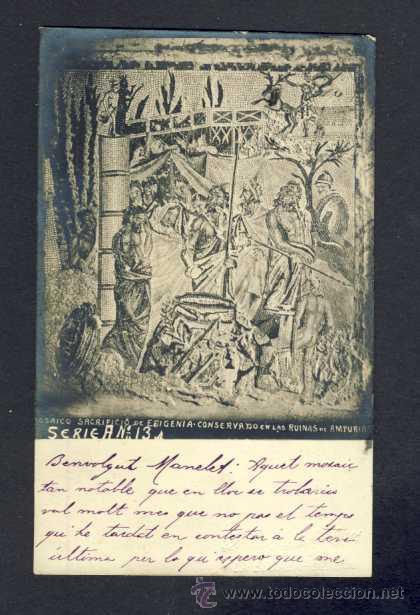 OSAICO SACRIFICIO DE EFIGENIA · CONSERVADO EN LAS RUINAS DE AMPURIAS
SERIE A Nº 13
Benvolgut Manelet: Aquet mosaic
tan notable, que en lloc se trobaria
val molt mes que no pas el temps
qu'he tardat en contestar á la teva
última per lo qu'espero que me
todocoleccion
www.todocoleccion.net